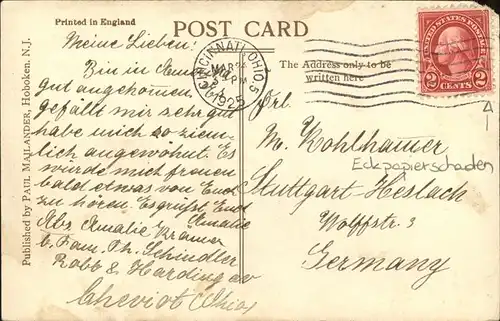 Printed in England
POST CARD
The Address only to be
written here
Published by PAUL MAJLANDER, Hoboken, N.J.
Meine Lieben!
Bin in Amerika
gut angekommen
gefällt mir sehr gut
habe mich so ziem-
lich angewöhnt. Es
würde mich freuen
bald etwas von Euch
zu hören. Es grüßt Euch
Amalie
Abs Amalie Krämer
b. Fam. Ph. Schindler
Robb & Harding av
Cheviot Ohio
CINCINNATI, OHIO
MAR 24
PM
1925
UNITED STATES POSTAGE
2 CENTS 2
Frl.
M. Kohlhammer
Eckpapierschaden
Stuttgart-Heslach
Wolffstr. 3
Germany